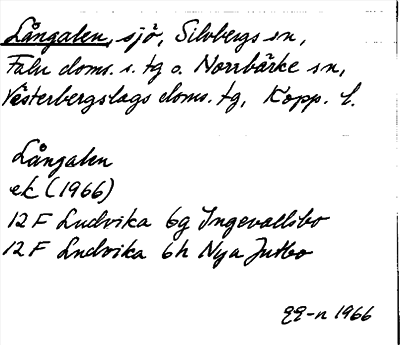 Långalen, sjö, Silvbergs sn,
Falu doms. s. tg o. Norrbärke sn,
Västerbergslags doms. tg, Kopp. l.
Långalen
ek (1966)
12 F Ludvika 6g Ingevallsbo
12 F Ludvika 6h Nya Jutbo
qq-n 1966